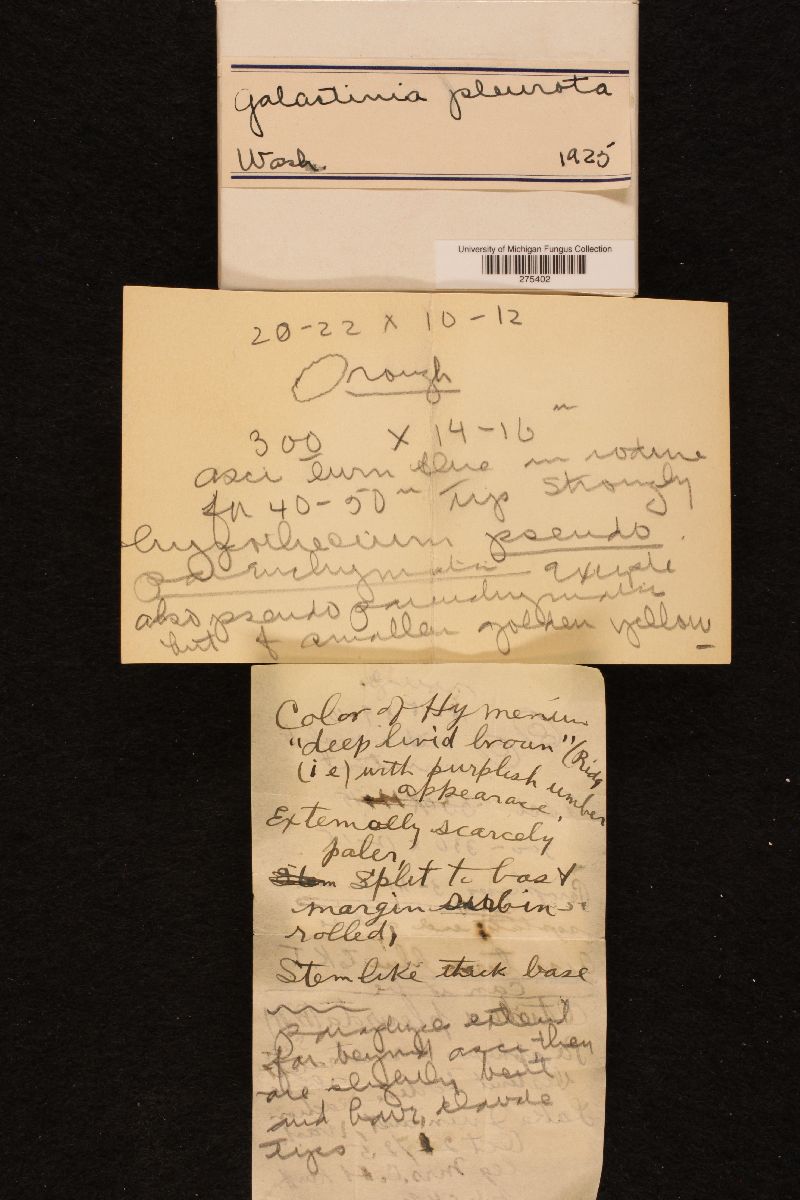 Galactinia pleurota
Wash. 1925
University of Michigan Fungus Collection
275402
20-22 x 10-12
rough
300 x 14-16
asci turn blue in iodine
for 40-50 Tips strongly
hypothecium pseudo
parenchymatic exciple
also pseudo parenchymatic
but of smaller golden yellow
Color of Hymenium
"deep livid brown" (Ridg
(i e) with purplish umber
appearace,
Externally scarcely
paler,
Split to bas &
margin inrolled,
Stem like base
paraphyses extend
far beyond asci they
are slightly bent
and have clavate
tips